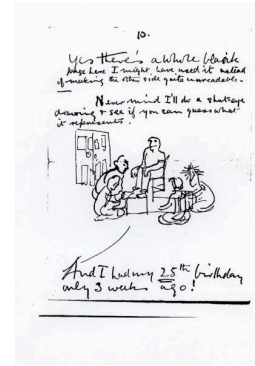 10.
Yes there's a whole blank
page here I might have used it instead
of making the other side quite unreadable.
Never mind I'll do a shuteye
drawing & see if you can guess what
it represents.
And I had my 25th birthday
only 3 weeks ago!